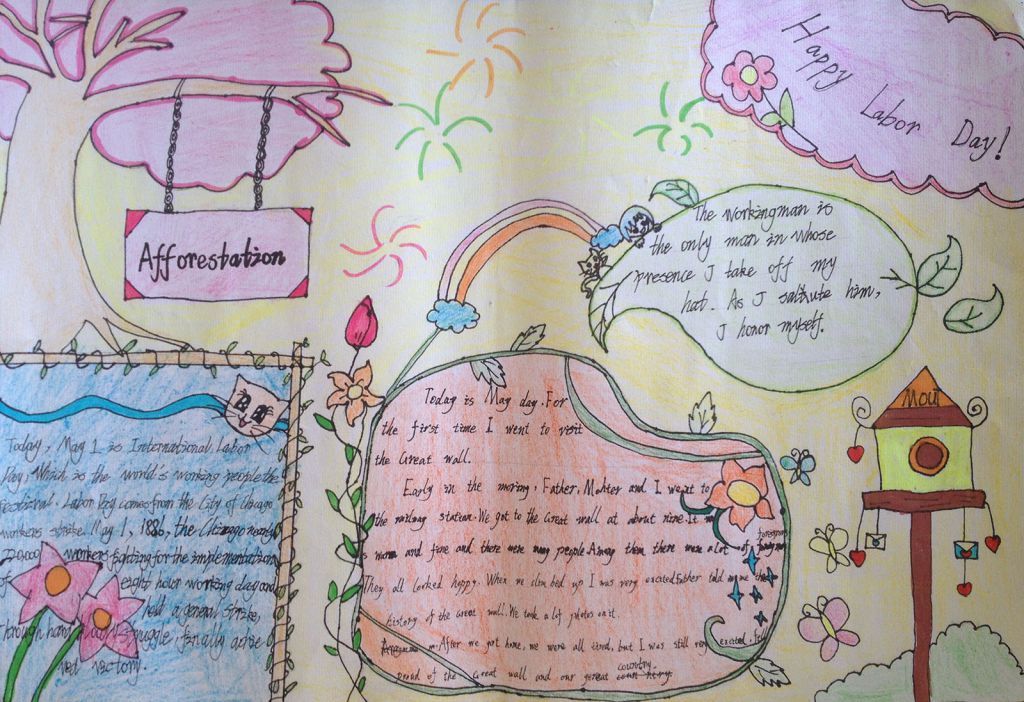 Happy Labor Day!
Afforestation
The workingman is
the only man in whose
presence I take off my
hat. As I salthute him,
I honor myself.
Moul
Today is May day. For
the first time I went to visit
the Great wall.
Early in the moring, Father, Mohter and I went to
the railway We got to the Great wall at about nine. It
warm and fine and there were many people Among them there were a lot of
They all looked happy. When we climbed up I was very excited Father told me the
history of the Great wall. We took a lot photos on it.
After we got home, we were all tired, but I was still very excited.
proud of the Great wall and our gereat country.
Today, May 1 is International Labor
Day, Which is the world's working people the
Labor Day comes from the City of Chicago
workers strike. May 1, 1886, the Chicago
workers fighting for the implementation
of eight hour working died and
held a general strike,
through hard struggle, finally
victory.